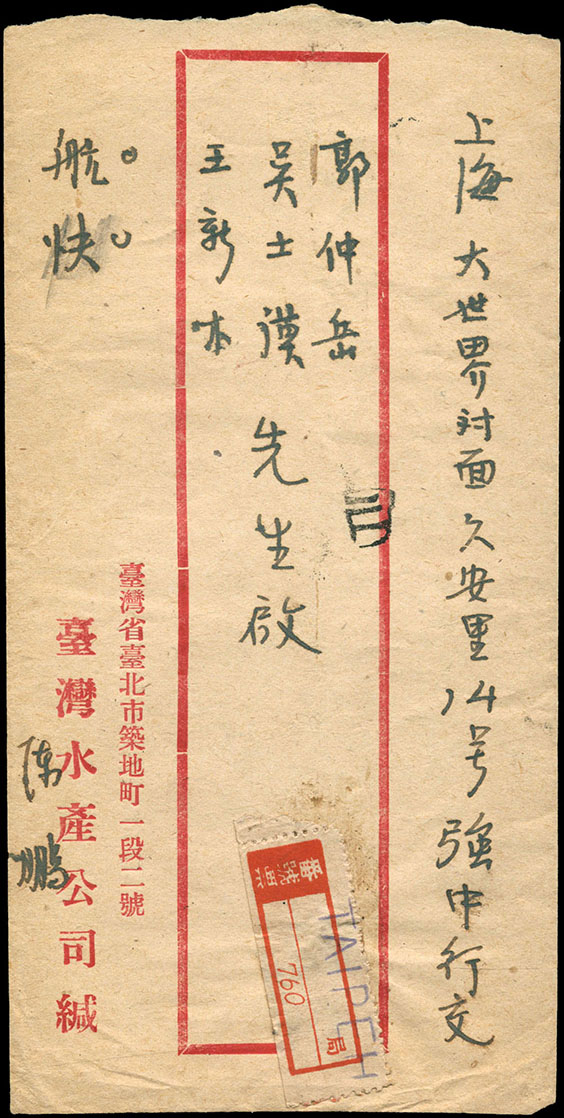 上海 大世界对面久安里14号 强中行交
郭仲岳
吴士漢 先生啟
王新
航。
快。
臺灣省臺北市築地町一段二號
臺灣水產公司緘
陈鹏
TAIPEH
760
局